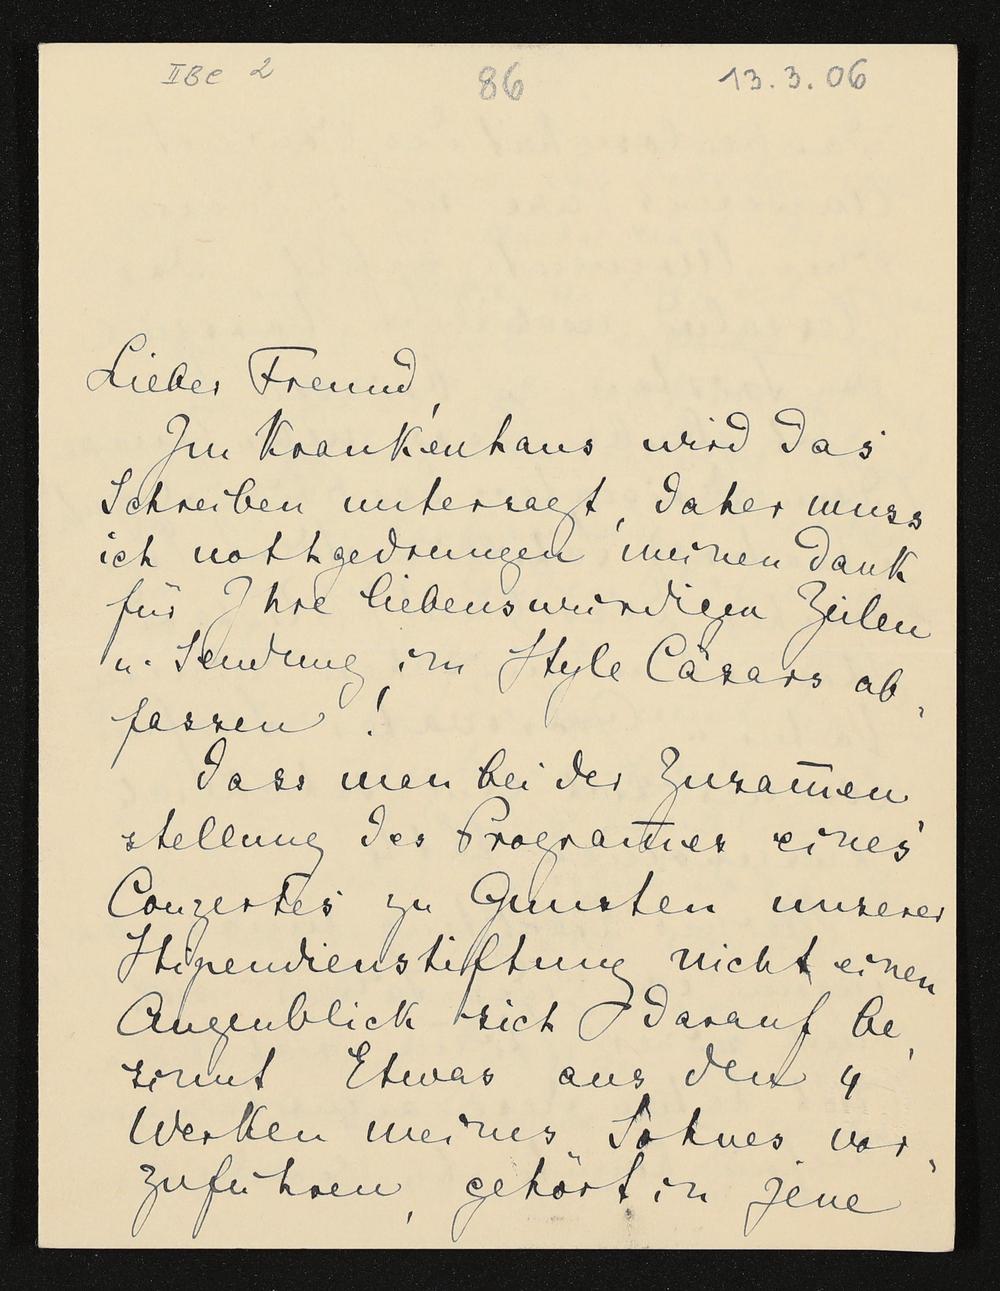 IIBe 2 86 13.3.06
Lieber Freund,
Im Krankenhaus wird das
Schreiben untersagt, daher muss
ich nothgedrungen meinen Dank
für Ihre liebenswürdigen Zeilen
u. Sendung im Style Cäsars ab-
fassen!
Dass man bei der Zusam̅en
stellung des Program̅es eines
Conzertes zu Gunsten unserer
Stipendienstiftung nicht einen
Augenblick sich darauf be-
sinnt Etwas aus den 4
Werken meines Sohnes vor-
zuführen, gehört in jene